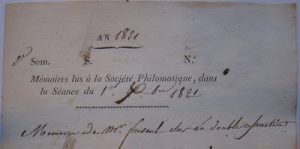 AN 1821
Sem. S. N.°
Mémoires lus à la Société Philomatique, dans
la Séance du 1er Xbre 1821
Memoire de Mr. fresnel sur la double refraction